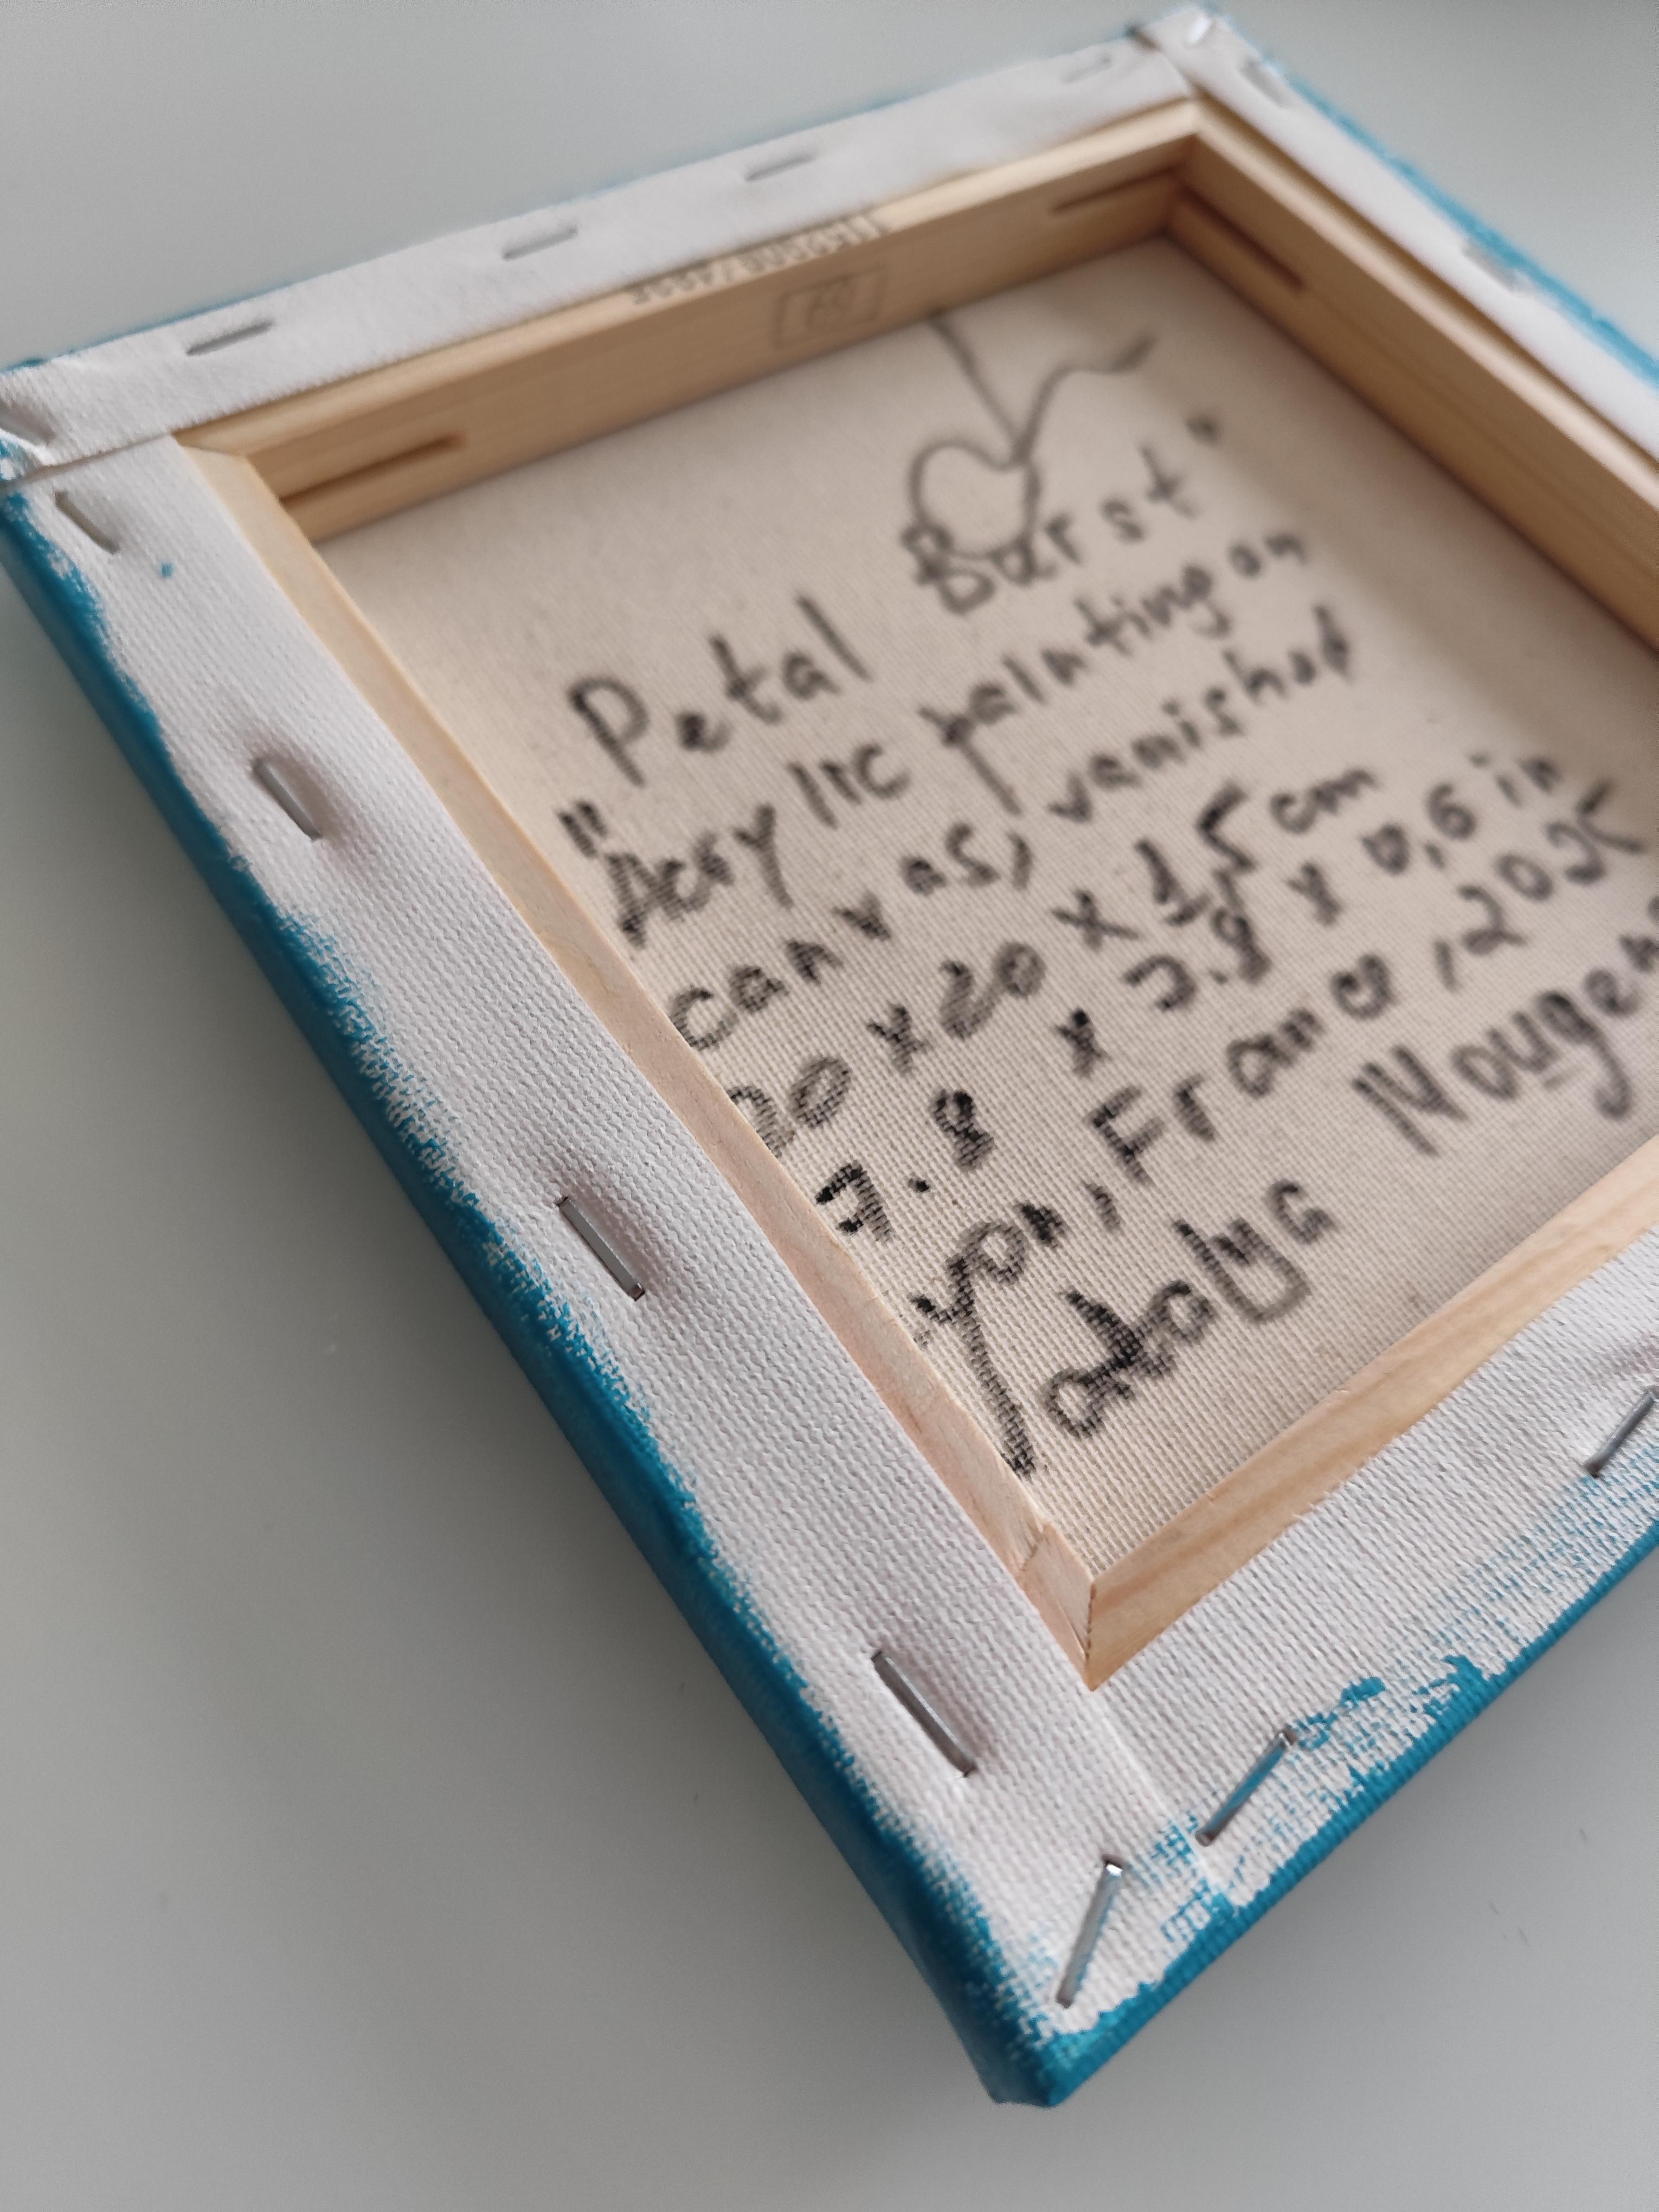 "Petal Burst"
Acrylic painting on
canvas, vanished
20 x 20 x 1,5 cm
7.8 x 7.8 x 0,6 in
yon, France, 2025
atalya Nougen